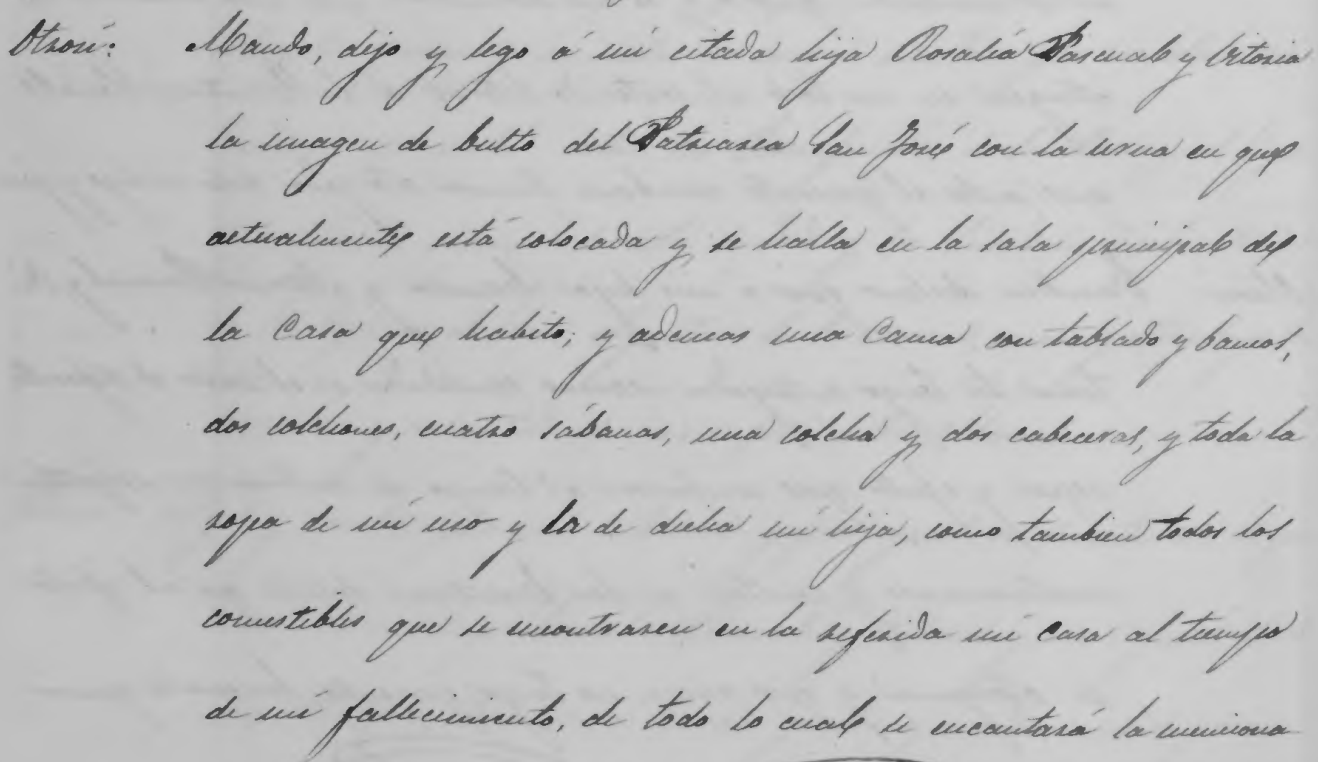 Otrosí: Mando, dejo y lego á mi citada hija Rosalía Pascual y Vitoria
la imagen de bulto del Patriarca San José con la urna en que
actualmente está colocada y se halla en la sala principal de
la Casa que habito; y ademas una Cama con tablado y bancos,
dos colchones, cuatro sábanas, una colcha y dos cabeceras, y toda la
ropa de mi uso y la de dicha mi hija, como tambien todos los
comestibles que se encontrasen en la referida mi Casa al tiempo
de mi fallecimiento, de todo lo cual se encantará la menciona